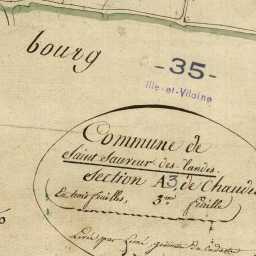 bourg
-35-
Ille-et-Vilaine
Commune de
Saint Sauveur des landes.
Section A3 de Chaude
En trois feuilles, 3me feuille
Levée par